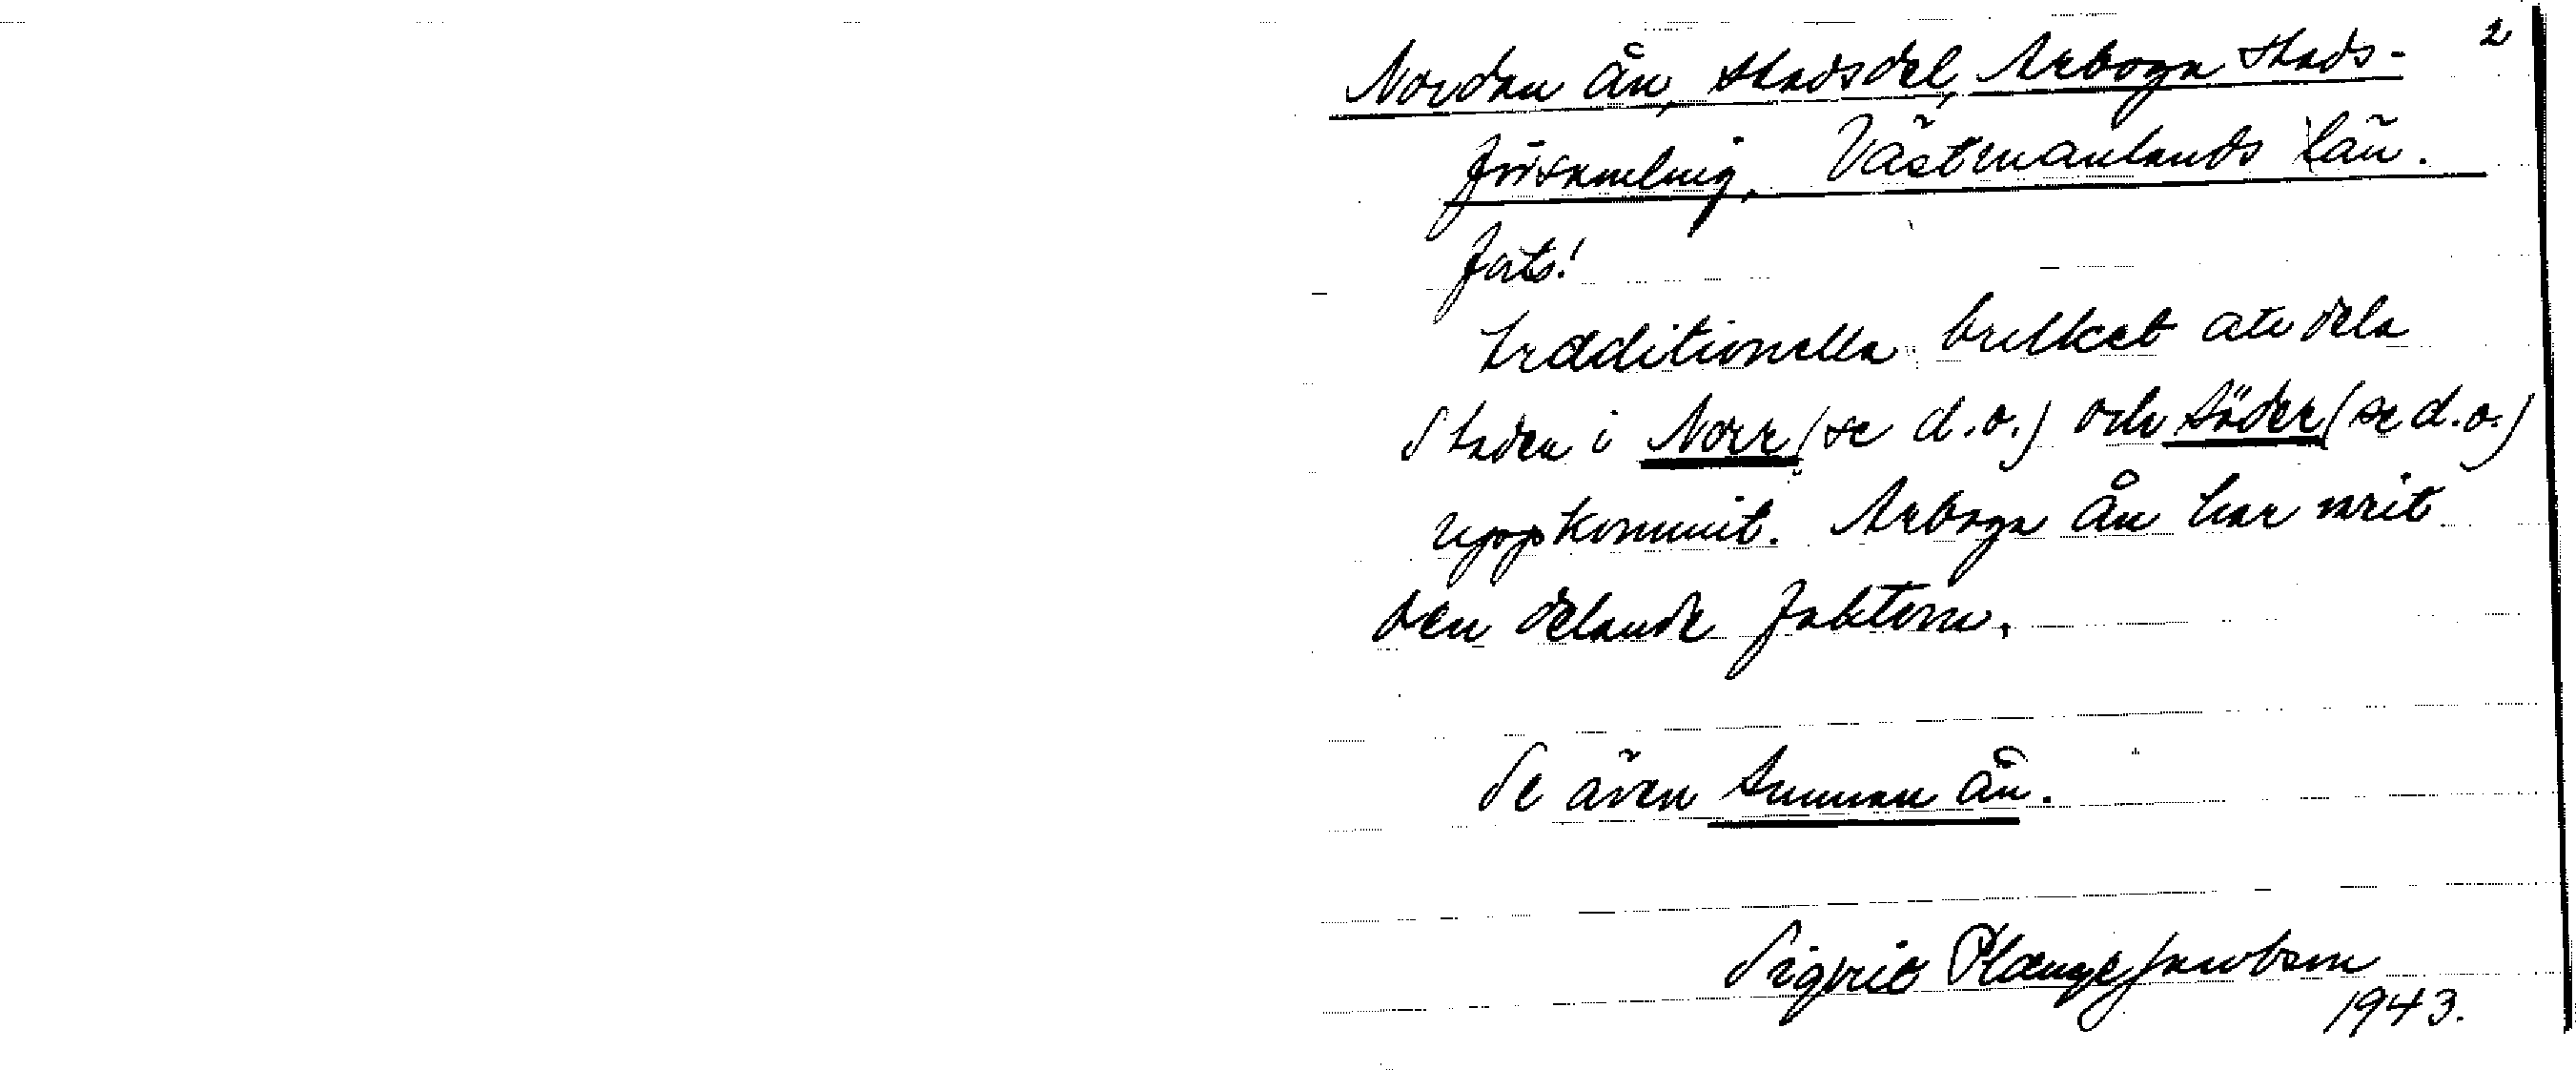 2
Nordan ån, stadsdel, Arboga stads-
församling, Västmanlands län.
forts!
traditionella bruket att dela
Staden i Norr (se d.o.) och Söder (se d.o.)
uppkommit. Arboga ån har varit
den delande faktorn.
Se även Sunnan ån.
Sigrid Plænge Jacobson
1943.